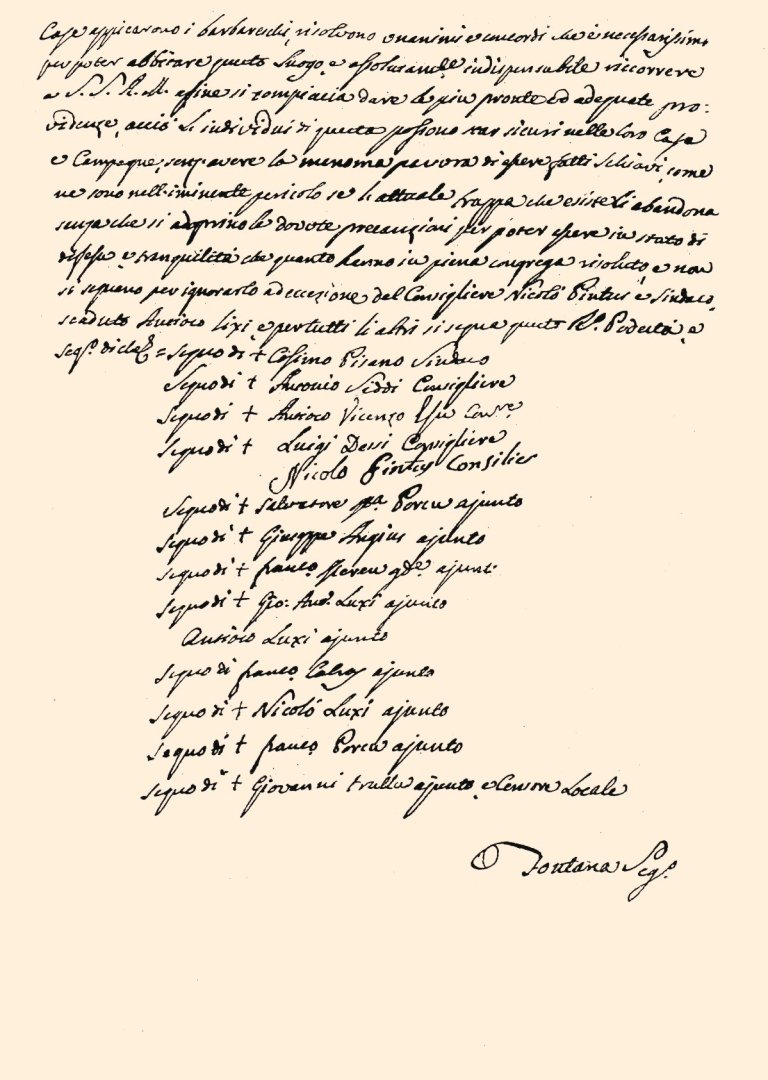 Case appicarono i barbareschi, risolvono unanimi e concordi che è necessarissimo
per poter abbitare questo Luogo, e assolutam.te indispensabile riccorrere
a S. S. R. M. affine si compiacia dare le più pronte ed adequate pro:
videnze, acciò li individui di questa possono star sicuri nelle loro Case
e Campagne, senz'avere la menoma paura di essere fatti Schiavi, come
ne sono nell'iminente pericolo se l'attuale trappa che esiste li abandona
senza che si adoprino le dovute precauzioni per poter essere in stato di
difesa, e tranquilità che quanto hanno in piena congrega risoluto, e non
si segnano per ignorarlo ad eccezione del Consigliere Nicolò Pintus e Sindaco
scaduto Antioco Lixi, e per tutti li altri si segna questo R.o Podestà, e
Seg.o di che =Segno di + Cosimo Pisano Sindaco
Segno di + Antonio Siddi Consigliere
Segno di + Antioco Vicenzo Esu Cons.re
Segno di + Luigi Dessi Consigliere
Nicolo Pintus Consilies
Segno di + Salvatore Porcu ajunto
Segno di + Giuseppe Angius ajunto
Segno di + franco ajunt.
Segno di + Gio: Ant.o Luxi ajunto
Antioco Luxi ajunto
Segno di franco ajunto
Segno di + Nicolò Luxi ajunto
Segno di + franco Porcu ajunto
Segno di + Giovanni trullu ajunto, e Censore Locale
Fontana Seg.o